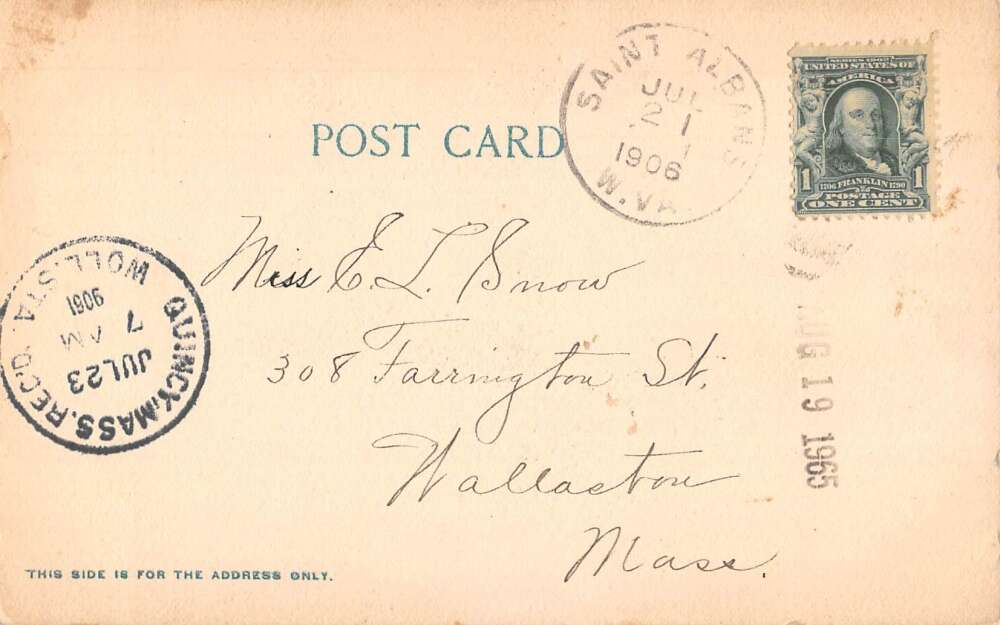 SAINT ALBANS
JUL
21
1906
W. VA.
SERIES 1902
UNITED STATES OF
AMERICA
1 1
1706 FRANKLIN 1790
POSTAGE
ONE CENT
POST CARD
Miss E. L. Snow
308 Farrington St.
Wallaston
Mass.
QUINCY, MASS. REC'D.
JUL 23
7 AM
1906
WOLL. STA.
AUG 19 1965
THIS SIDE IS FOR THE ADDRESS ONLY.